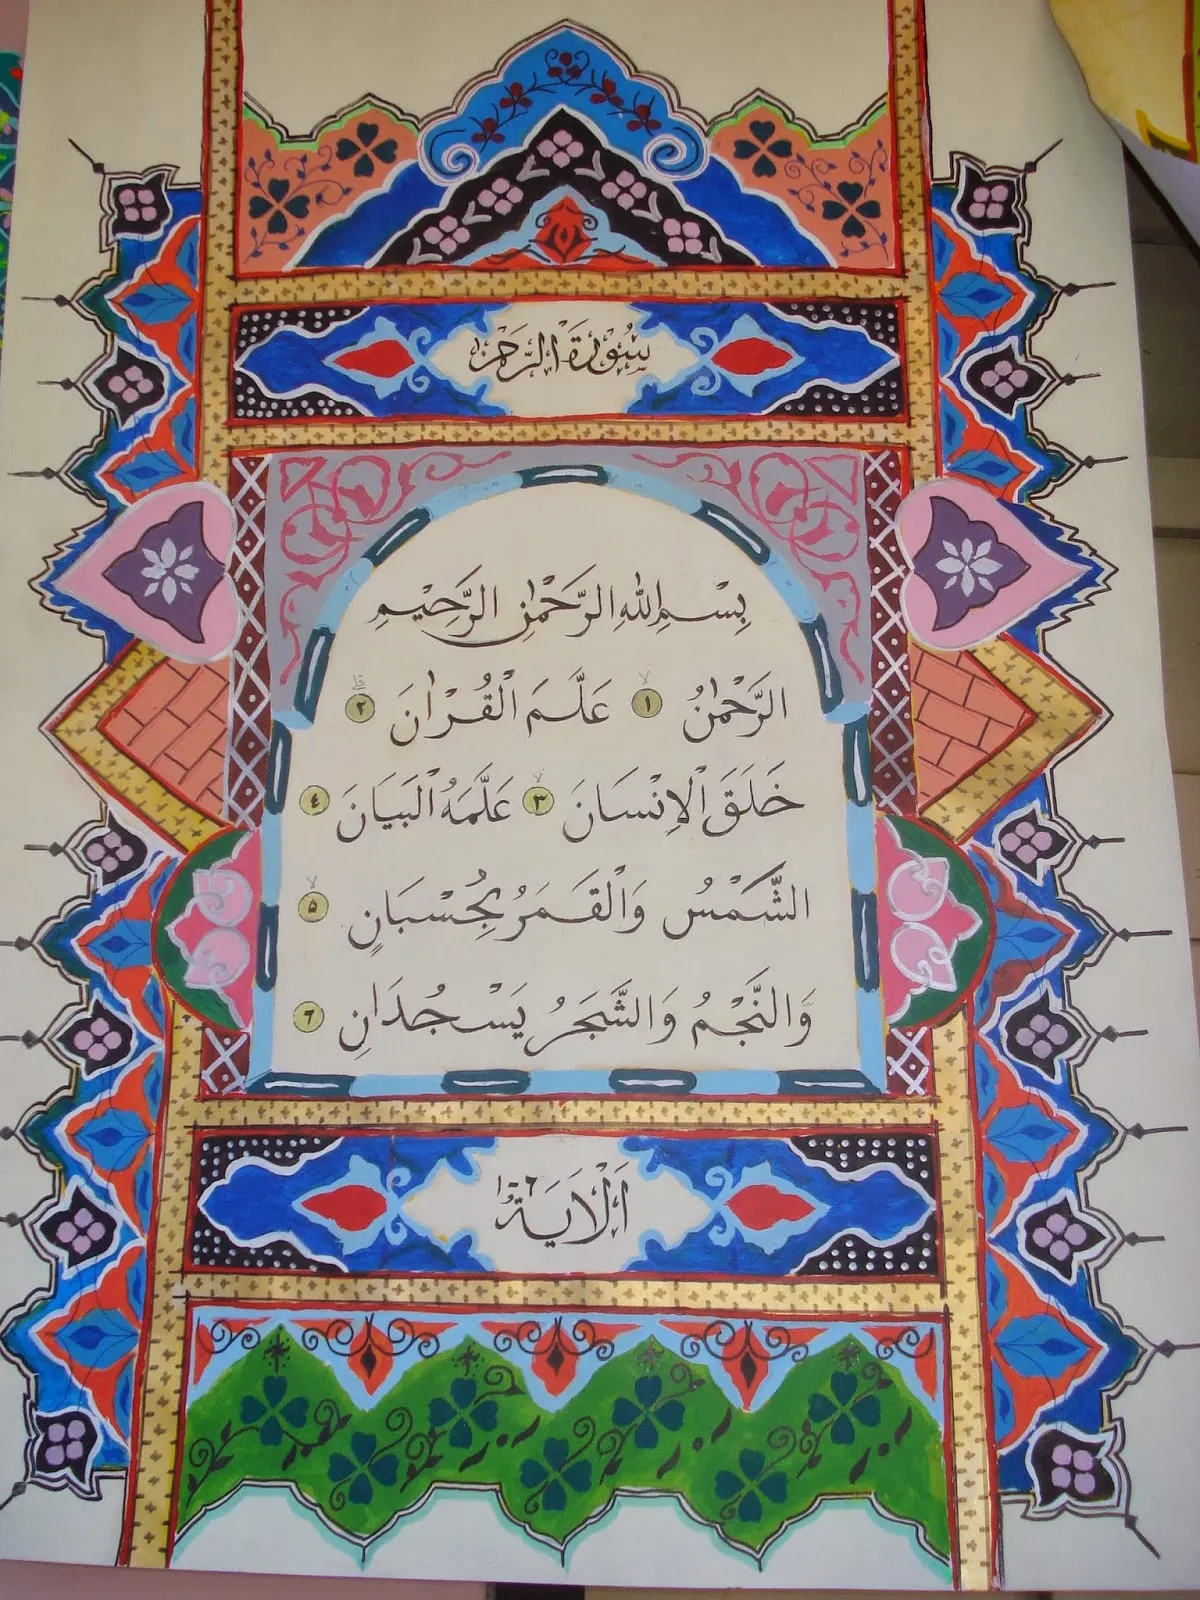 سُوْرَةُ الرَّحْمٰن
بِسْمِ اللهِ الرَّحْمٰنِ الرَّحِيْمِ
الرَّحْمٰنُ ۙ ١ عَلَّمَ الْقُرْاٰنَ ۗ ٢
خَلَقَ الْاِنْسَانَ ۙ ٣ عَلَّمَهُ الْبَيَانَ ٤
الشَّمْسُ وَالْقَمَرُ بِحُسْبَانٍ ۙ ٥
وَالنَّجْمُ وَالشَّجَرُ يَسْجُدَانِ ٦
اَلْاَيَةُ ١-٦